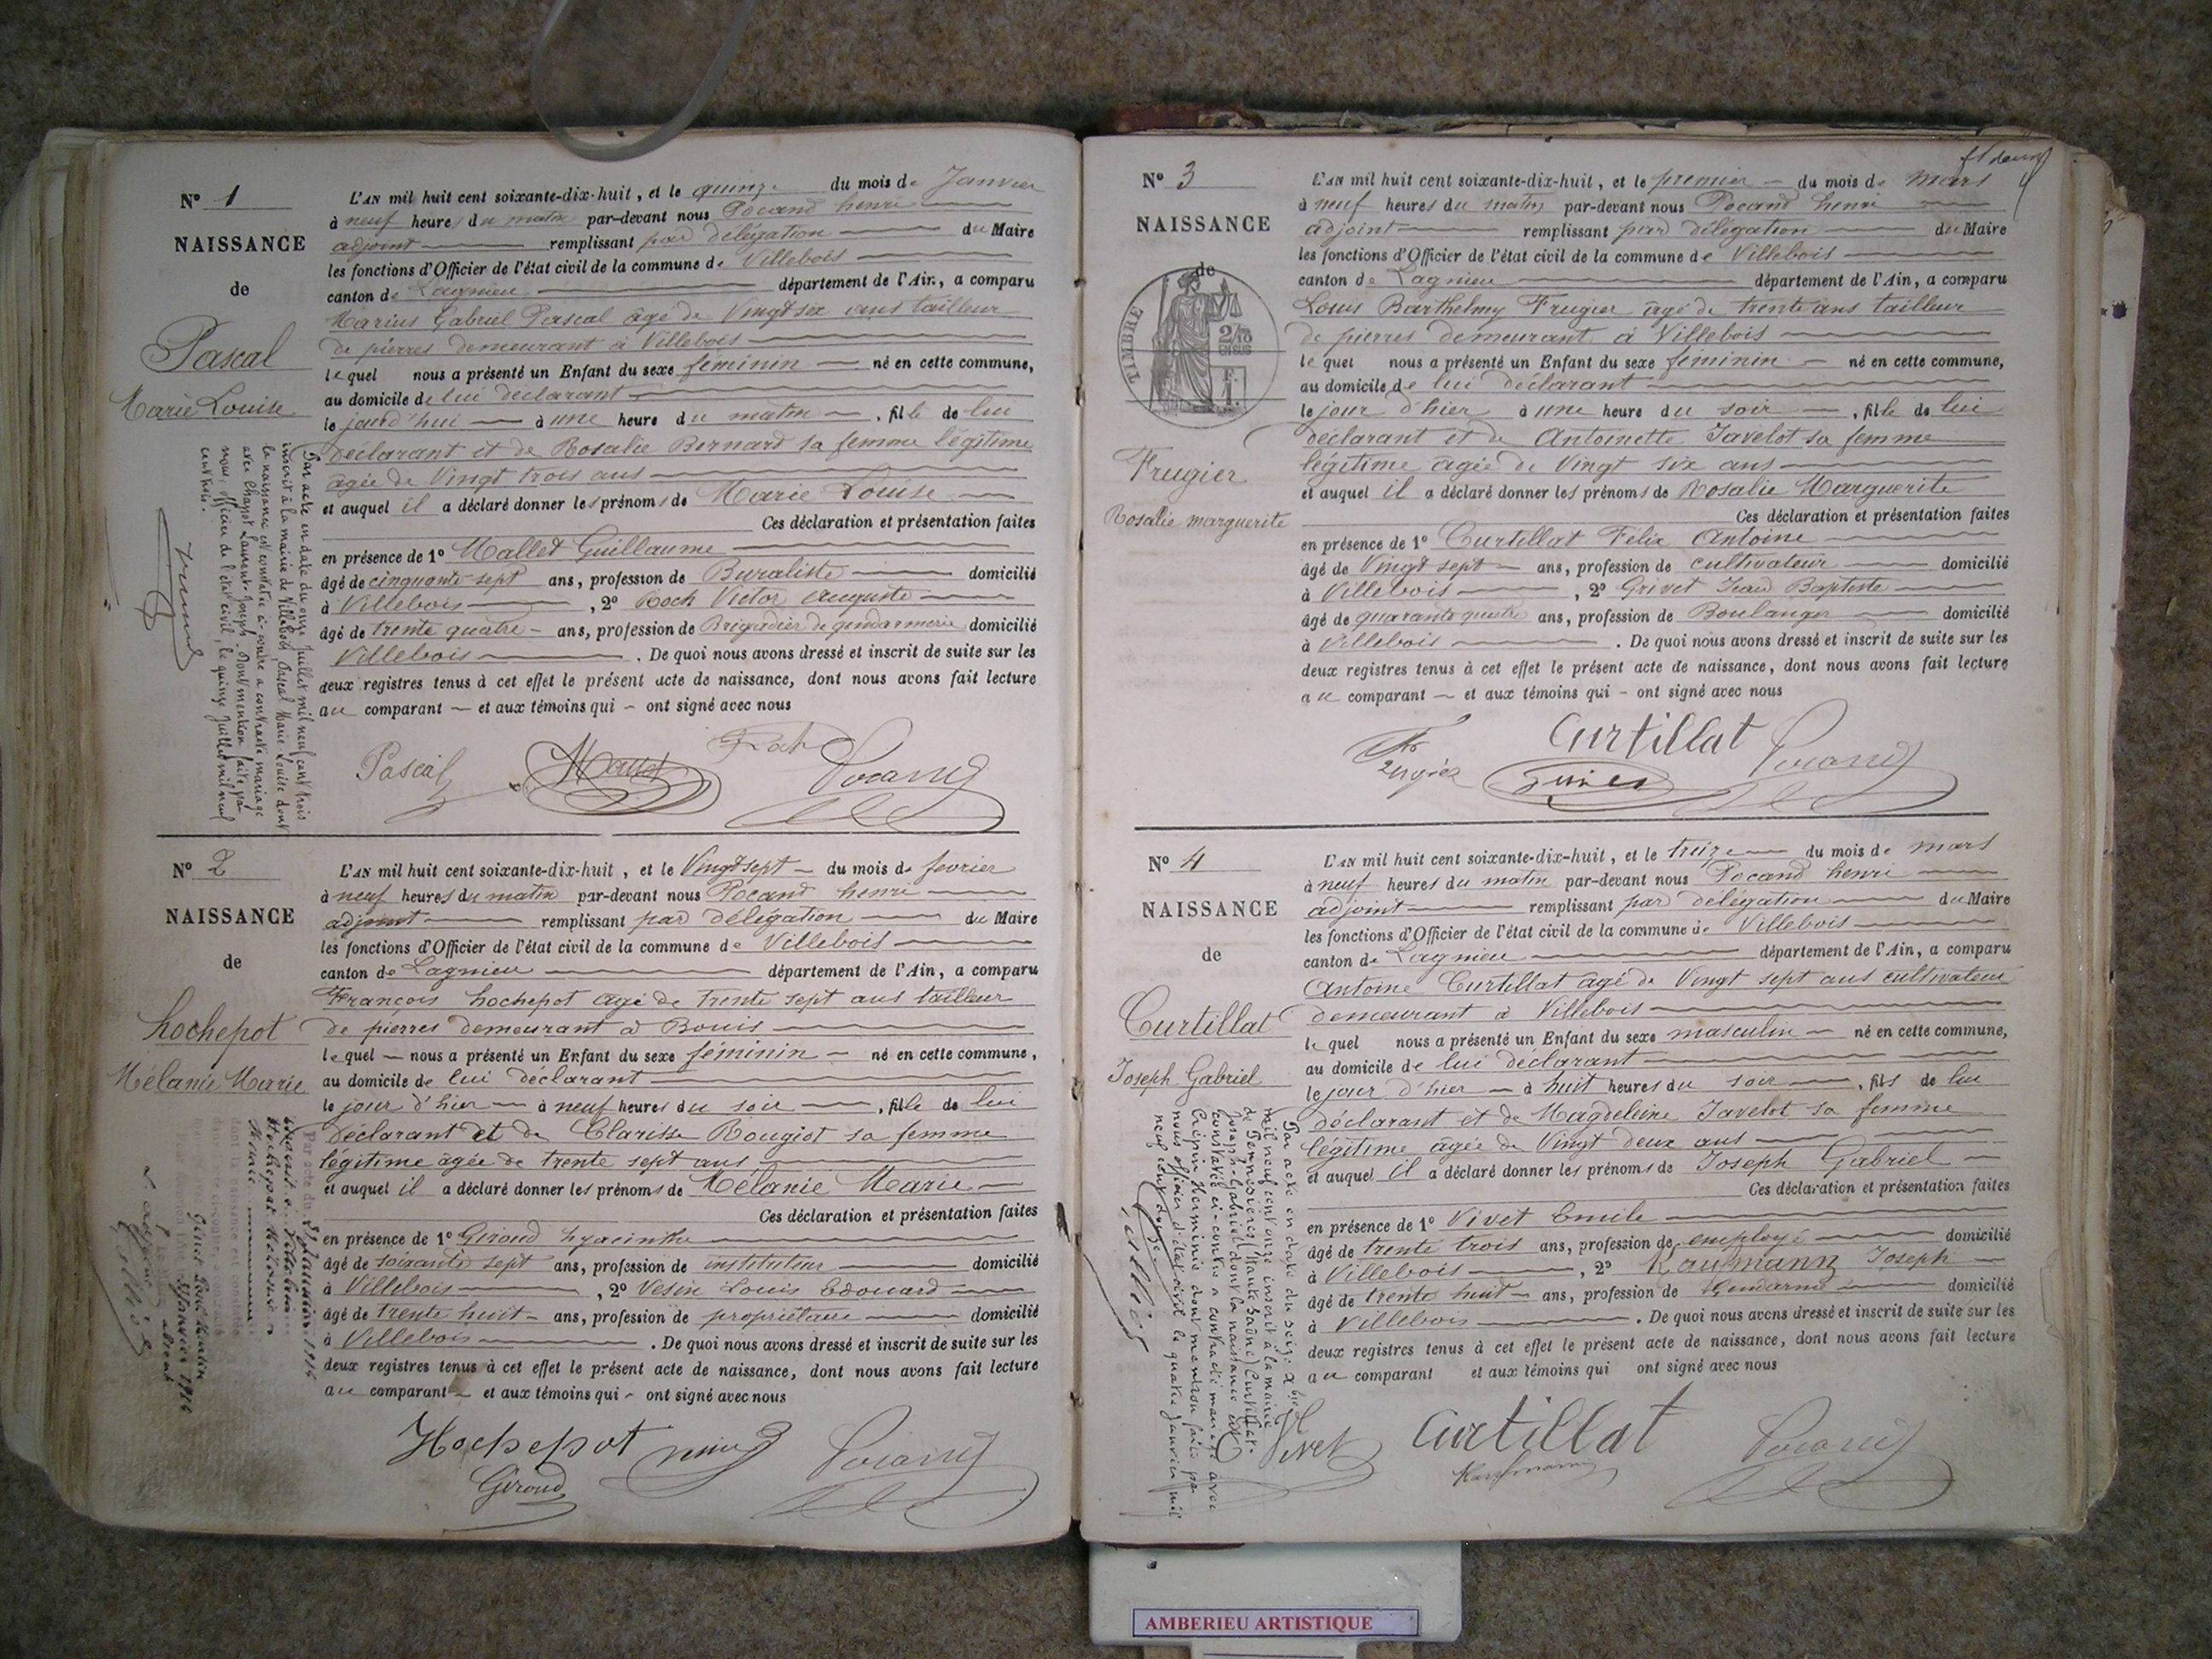 Nº 1
NAISSANCE
de
Pascal
Marie Louise
L'AN mil huit cent soixante-dix-huit, et le quinze du mois de Janvier
à neuf heures du matin par-devant nous Pocand henri
adjoint remplissant par délégation du Maire
les fonctions d'Officier de l'état civil de la commune de Villebois
canton de Lagnieu département de l'Ain, a comparu
Marius Gabriel Pascal âgé de Vingt six ans tailleur
de pierres demeurant à Villebois
le quel nous a présenté un Enfant du sexe féminin né en cette commune,
au domicile de lui déclarant
le jourd'hui à une heure du matin, fille de lui
déclarant et de Rosalie Bernard sa femme légitime
âgée de Vingt trois ans
et auquel il a déclaré donner les prénoms de Marie Louise
Ces déclaration et présentation faites
en présence de 1º Mallet Guillaume
âgé de cinquante sept ans, profession de Buraliste domicilié
à Villebois, 2º Roch Victor Auguste
âgé de trente quatre ans, profession de Brigadier de gendarmerie domicilié
Villebois. De quoi nous avons dressé et inscrit de suite sur les
deux registres tenus à cet effet le présent acte de naissance, dont nous avons fait lecture
au comparant et aux témoins qui ont signé avec nous
Pascal Mallet Roch Pocand
Par acte en date du onze Juillet mil neuf cent trois
inscrit à la mairie de Villebois, Pascal Marie Louise dont
la naissance est constatée ci-contre a contracté mariage
avec Chappot Laurent Joseph. Dont mention faite par
nous, officier de l'état civil le quinze Juillet mil neuf
cent trois.
Nº 2
NAISSANCE
de
hochepot
Mélanie Marie
L'AN mil huit cent soixante-dix-huit, et le Vingt sept du mois de fevrier
à neuf heures du matin par-devant nous Pocand henri
adjoint remplissant par délégation du Maire
les fonctions d'Officier de l'état civil de la commune de Villebois
canton de Lagnieu département de l'Ain, a comparu
François hochepot âgé de trente sept ans tailleur
de pierres demeurant à Bouis
le quel nous a présenté un Enfant du sexe féminin né en cette commune,
au domicile de lui déclarant
le jour d'hier à neuf heures du soir, fille de lui
déclarant et de Clarisse Rougiot sa femme
légitime âgée de trente sept ans
et auquel il a déclaré donner les prénoms de Mélanie Marie
Ces déclaration et présentation faites
en présence de 1º Giroud hyacinthe
âgé de soixante sept ans, profession de instituteur domicilié
à Villebois, 2º Vesin Louis Edouard
âgé de trente huit ans, profession de propriétaire domicilié
à Villebois. De quoi nous avons dressé et inscrit de suite sur les
deux registres tenus à cet effet le présent acte de naissance, dont nous avons fait lecture
au comparant et aux témoins qui ont signé avec nous
Hochepot Pocand
Giroud
Nº 3
NAISSANCE
de
TIMBRE
Frugier
Rosalie marguerite
L'AN mil huit cent soixante-dix-huit, et le premier du mois de mars
à neuf heures du matin par-devant nous Pocand henri
adjoint remplissant par délégation du Maire
les fonctions d'Officier de l'état civil de la commune de Villebois
canton de Lagnieu département de l'Ain, a comparu
Louis Barthelmy Frugier âgé de trente ans tailleur
de pierres demeurant à Villebois
le quel nous a présenté un Enfant du sexe féminin né en cette commune,
au domicile de lui déclarant
le jour d'hier à une heure du soir, fille de lui
déclarant et de Antoinette Javelot sa femme
légitime âgée de Vingt six ans
et auquel il a déclaré donner les prénoms de Rosalie Marguerite
Ces déclaration et présentation faites
en présence de 1º Curtillat Félix Antoine
âgé de Vingt sept ans, profession de cultivateur domicilié
à Villebois, 2º Grivet Jean Baptiste
âgé de quarante quatre ans, profession de Boulanger domicilié
à Villebois. De quoi nous avons dressé et inscrit de suite sur les
deux registres tenus à cet effet le présent acte de naissance, dont nous avons fait lecture
au comparant et aux témoins qui ont signé avec nous
Curtillat Pocand
Frugier
Nº 4
NAISSANCE
de
Curtillat
Joseph Gabriel
L'AN mil huit cent soixante-dix-huit, et le treize du mois de mars
à neuf heures du matin par-devant nous Pocand henri
adjoint remplissant par délégation du Maire
les fonctions d'Officier de l'état civil de la commune de Villebois
canton de Lagnieu département de l'Ain, a comparu
Antoine Curtillat âgé de Vingt sept ans cultivateur
demeurant à Villebois
le quel nous a présenté un Enfant du sexe masculin né en cette commune,
au domicile de lui déclarant
le jour d'hier à huit heures du soir, fils de lui
déclarant et de Magdeleine Javelot sa femme
légitime âgée de Vingt deux ans
et auquel il a déclaré donner les prénoms de Joseph Gabriel
Ces déclaration et présentation faites
en présence de 1º Vivet Emile
âgé de trente trois ans, profession de employé domicilié
à Villebois, 2º Kaufmann Joseph
âgé de trente huit ans, profession de Gendarme domicilié
à Villebois. De quoi nous avons dressé et inscrit de suite sur les
deux registres tenus à cet effet le présent acte de naissance, dont nous avons fait lecture
au comparant et aux témoins qui ont signé avec nous
Vivet Curtillat Pocand
Kaufmann
AMBERIEU ARTISTIQUE